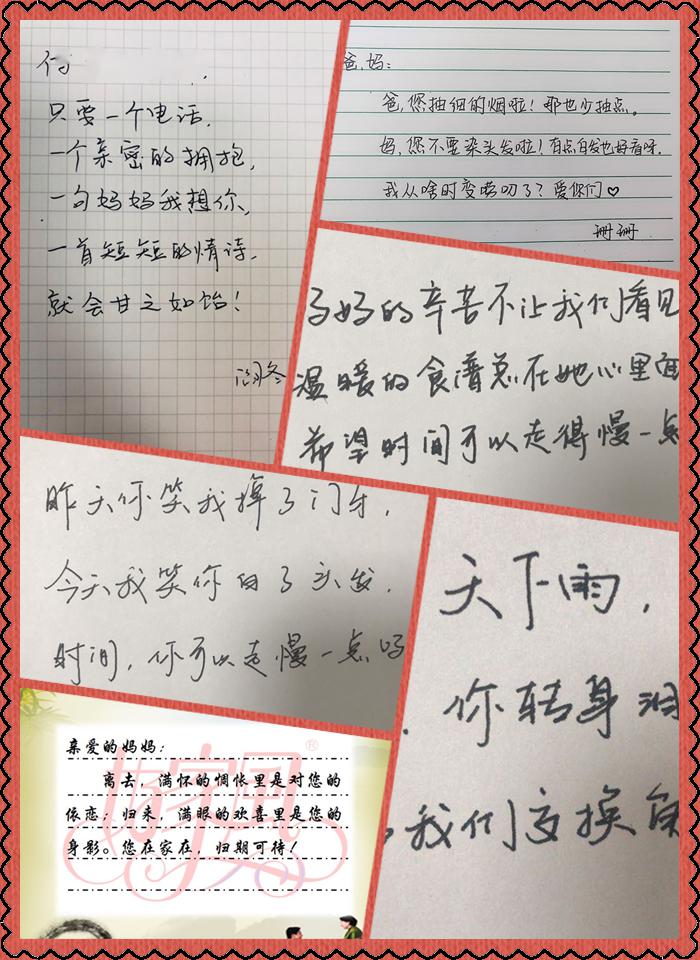 只要一个电话，
一个亲密的拥抱，
一句妈妈我想你，
一首短短的情诗，
就会甘之如饴！
爸，妈：
爸，您抽细的烟啦！那也少抽点。
妈，您不要染头发啦！有点白发也好看呀。
我从啥时变唠叨了？爱你们♡
珊珊
妈妈的辛苦不让我们看见
温暖的食谱总在她心里面
希望时间可以走得慢一点
昨天你笑我掉了门牙，
今天我笑你白了头发，
时间，你可以走慢一点吗
天下雨，
你转身
我们交换
好家风®
亲爱的妈妈：
离去，满怀的惆怅里是对您的
依恋；归来，满眼的欢喜里是您的
身影。您在家在，归期可待！